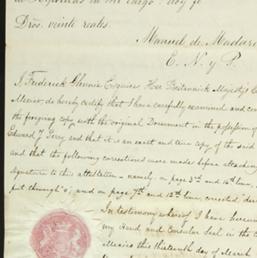 Dros. veinte reales.
Manuel de Madari
E. N. y P.
I Frederick Glennie Esquire Her Britannick Majesty's
Mexico, do hereby certify that I have carefully examined and com
the foregoing copy with the original Document in the possession of
Edward J. Perry and that it is an exact and true copy of the said
and that the following corrections were made before attaching
signature to this attestation - namely, on page 5th and 16th line,
put through "o", and on page 7th and 12th line, corrected
In testimony whereof I have hereunto
my Hand and Consular Seal in the
Mexico this thirteenth day of March